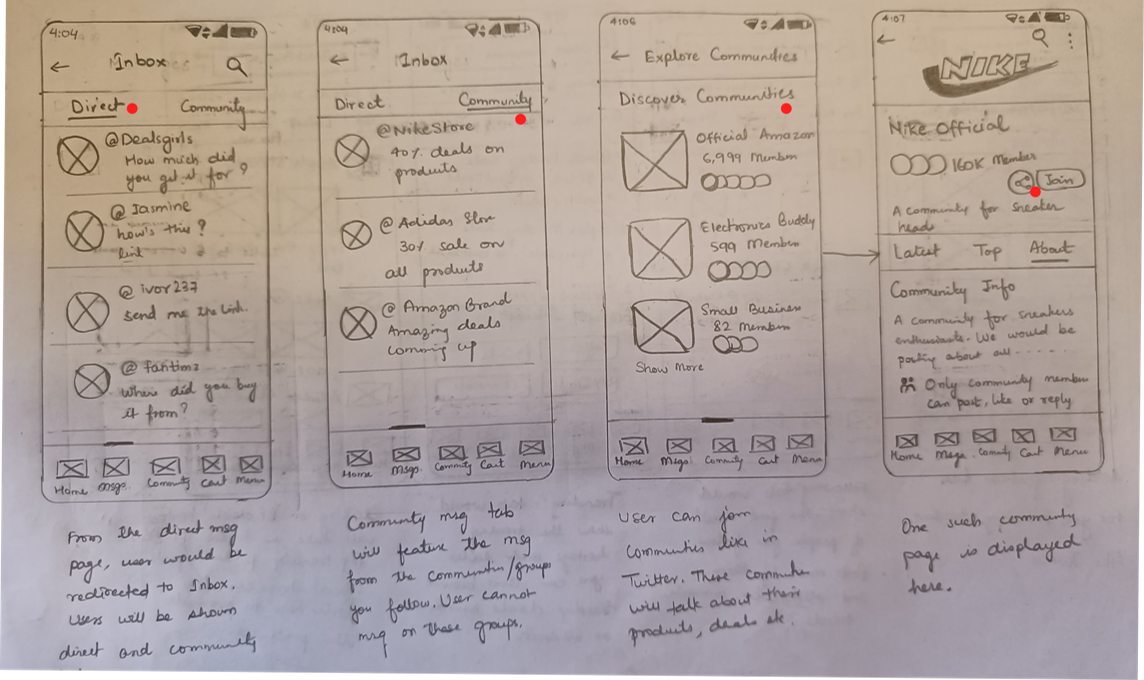 4:04
← Inbox
Direct Community
@Dealsgirls
How much did
you get it for?
@ Jasmine
how's this?
link
@ ivor237
send me the link.
@ fantim2
Where did you buy
it from?
Home Msgs. Community Cart Menu
From the direct msg
page, user would be
redirected to Inbox.
Users will be shown
direct and community
4:04
← Inbox
Direct Community
@NikeStore
40% deals on
products
@ Adidas Stor
30% sale on
all products
@ Amazon Brand
Amazing deals
comming up
Home Msgs. Community Cart Menu
Community msg tab
will feature the msg
from the communities/groups
you follow. User cannot
msg on those groups.
4:06
← Explore Communities
Discover Communities
Official Amazon
6,999 Members
Electronics Buddy
599 Members
Small Business
82 Members
Show More
Home Msgs Community Cart Menu
User can join
Communities like in
Twitter. These communities
will talk about their
products, deals etc.
4:07
←
NIKE
Nike Official
160K Member
Join
A community for sneaker
heads
Latest Top About
Community Info
A community for sneakers
enthusiasts. We would be
posting about all .....
Only community members
can post, like or reply
Home Msgs Community Cart Menu
One such community
page is displayed
here.